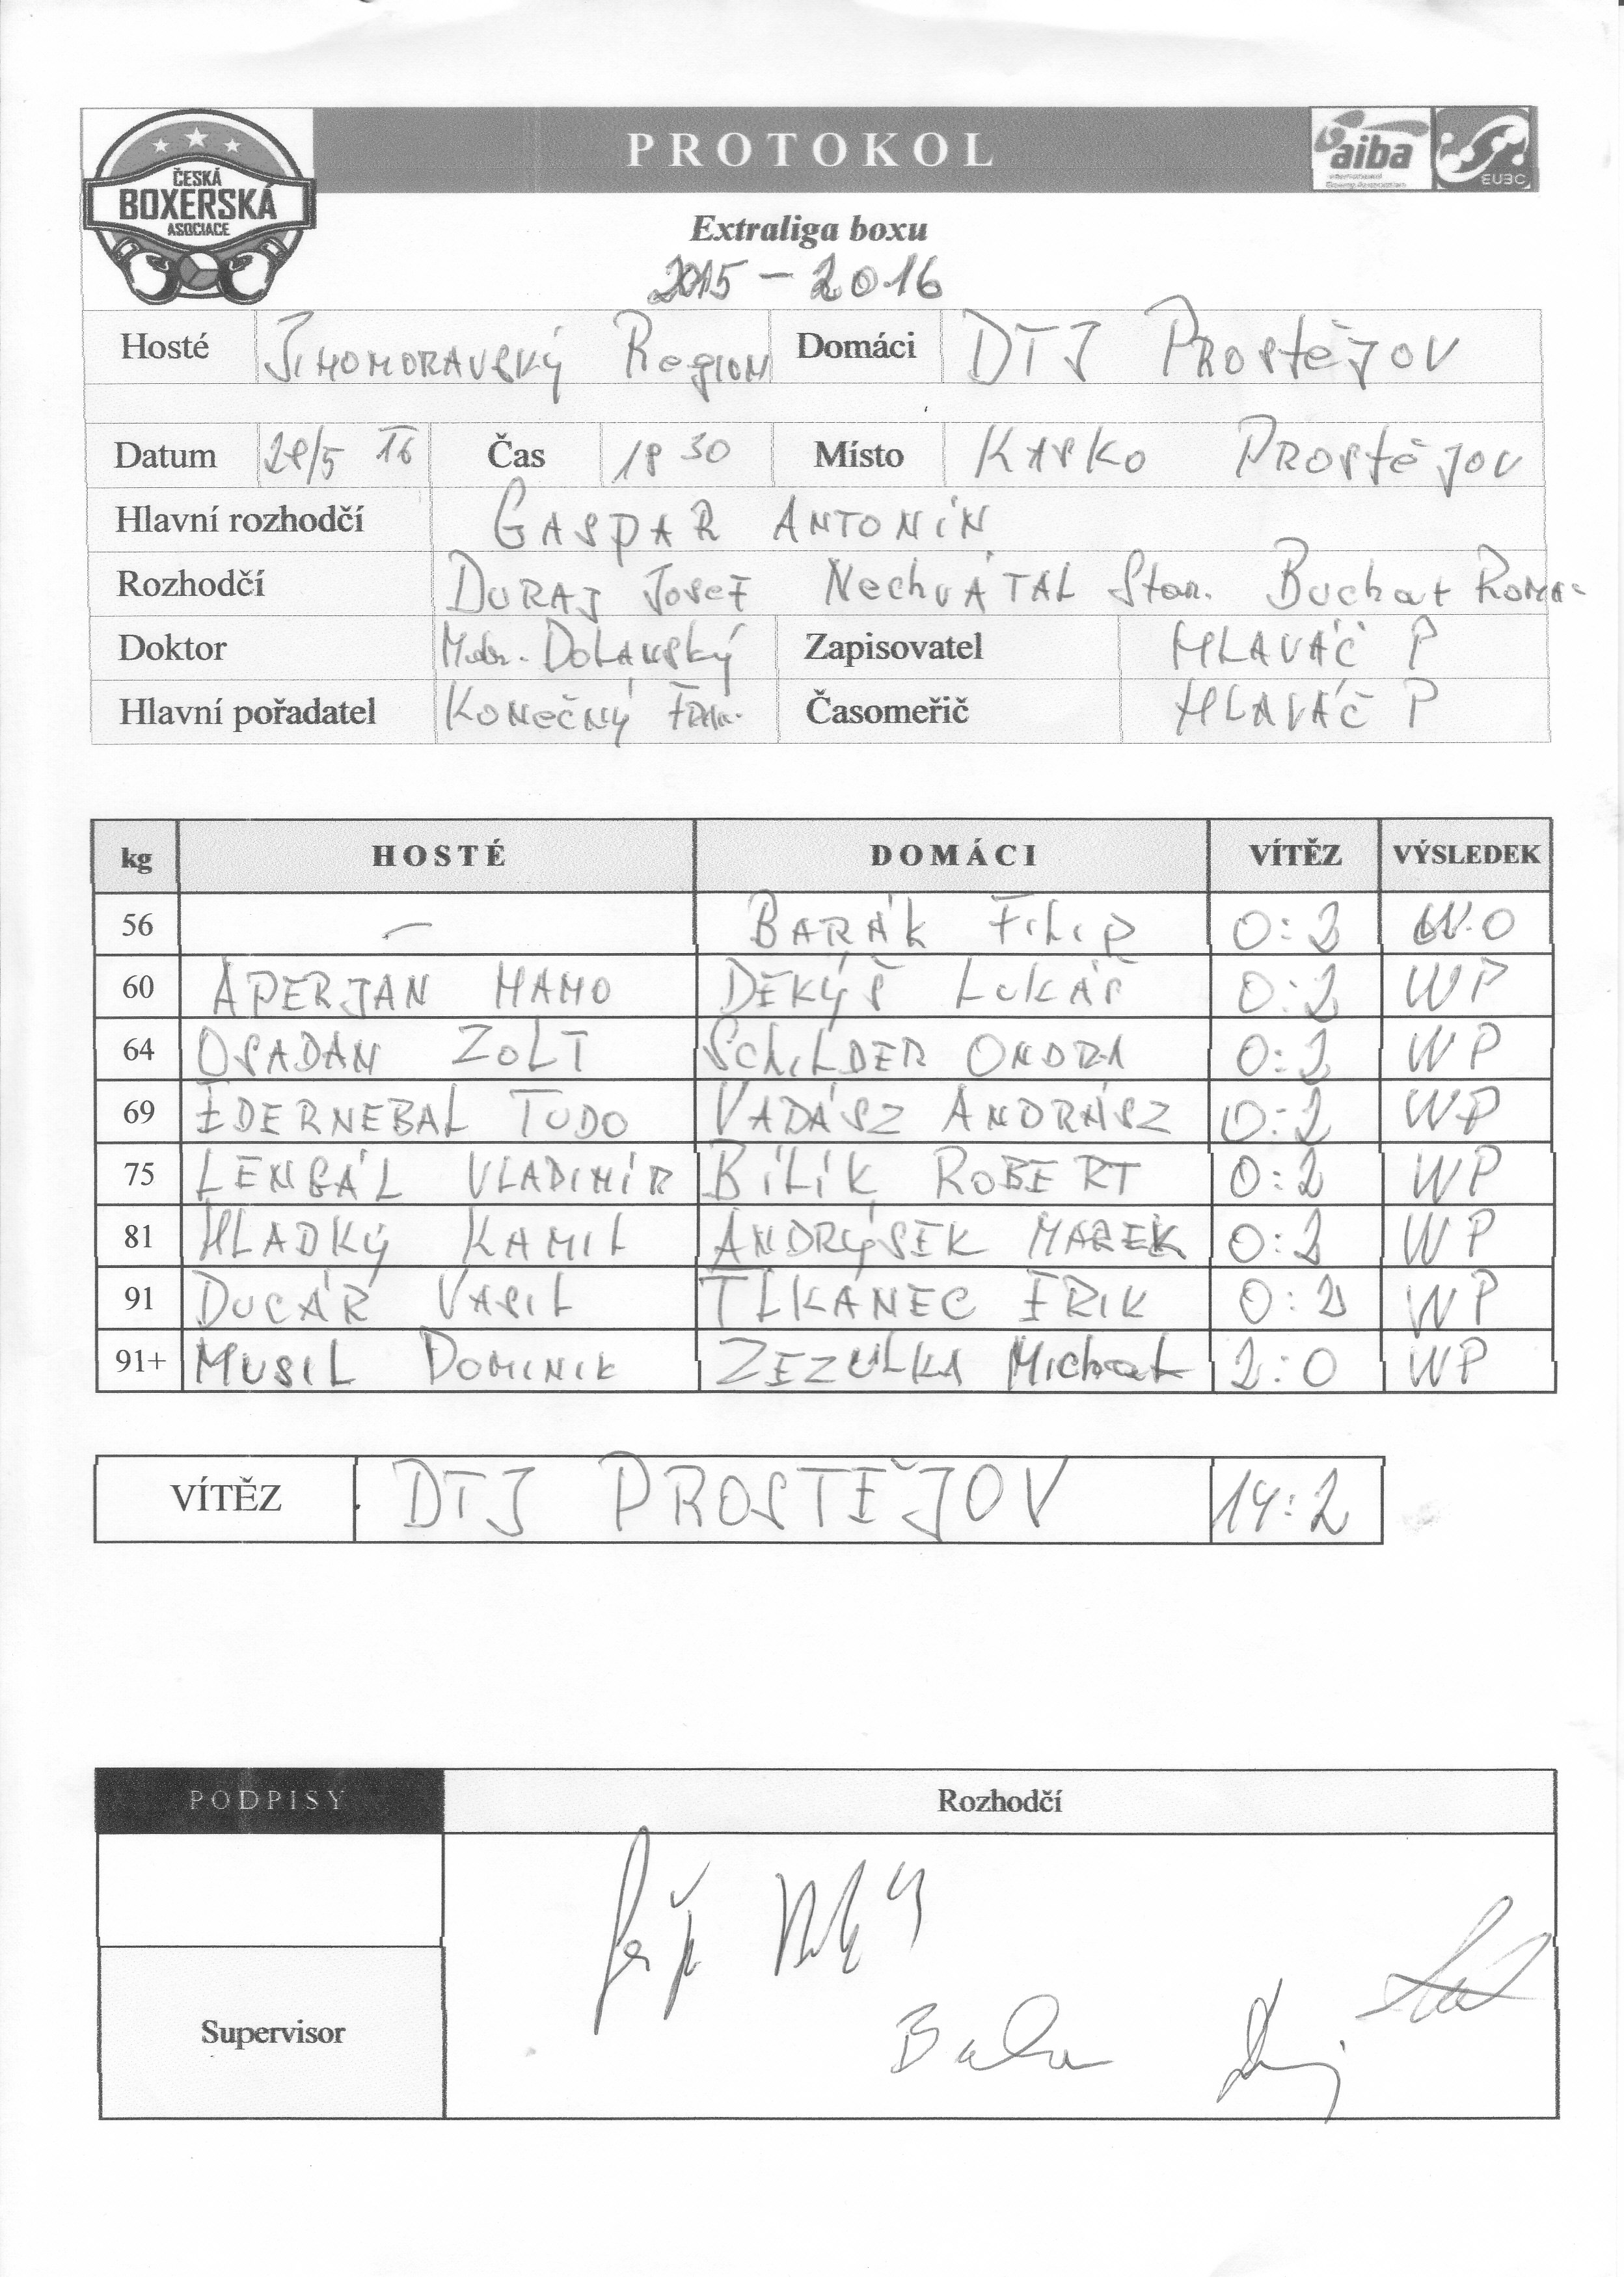 PROTOKOL
ČESKÁ
BOXERSKÁ
ASOCIACE
aiba
International
Boxing Association
EUBC
Extraliga boxu
2015 - 2016
Hosté JIHOMORAVSKÝ REGION Domáci DTJ PROSTĚJOV
Datum 28/5 16 Čas 18 30 Místo KASKO PROSTĚJOV
Hlavní rozhodčí GASPAR ANTONÍN
Rozhodčí DURAJ JOSEF NechVÁTAL Stan. Buchat
Doktor Mudr. DOLANSKÝ Zapisovatel HLAVÁČ P
Hlavní pořadatel KONEČNÝ Fran. Časomeřič HLAVÁČ P
kg HOSTÉ DOMÁCI VÍTĚZ VÝSLEDEK
56 – BARÁK FILIP 0:2 W.O
60 APERJAN MAMO DĚKÝŠ LUKÁŠ 0:2 WP
64 OSADAN ZOLT SCHILDER ONDRA 0:2 WP
69 EDERNEBAL TUDO VADÁSZ ANDRÁSZ 0:2 WP
75 LENGÁL VLADIMÍR BÍLÍK ROBERT 0:2 WP
81 HLADKÝ KAMIL ANDRÝSEK MAREK 0:2 WP
91 DUCÁR VASIL TLKANEC ERIK 0:2 WP
91+ MUSIL DOMINIK ZEZULKA Michal 2:0 WP
VÍTĚZ DTJ PROSTĚJOV 14:2
PODPISY Rozhodčí
Supervisor